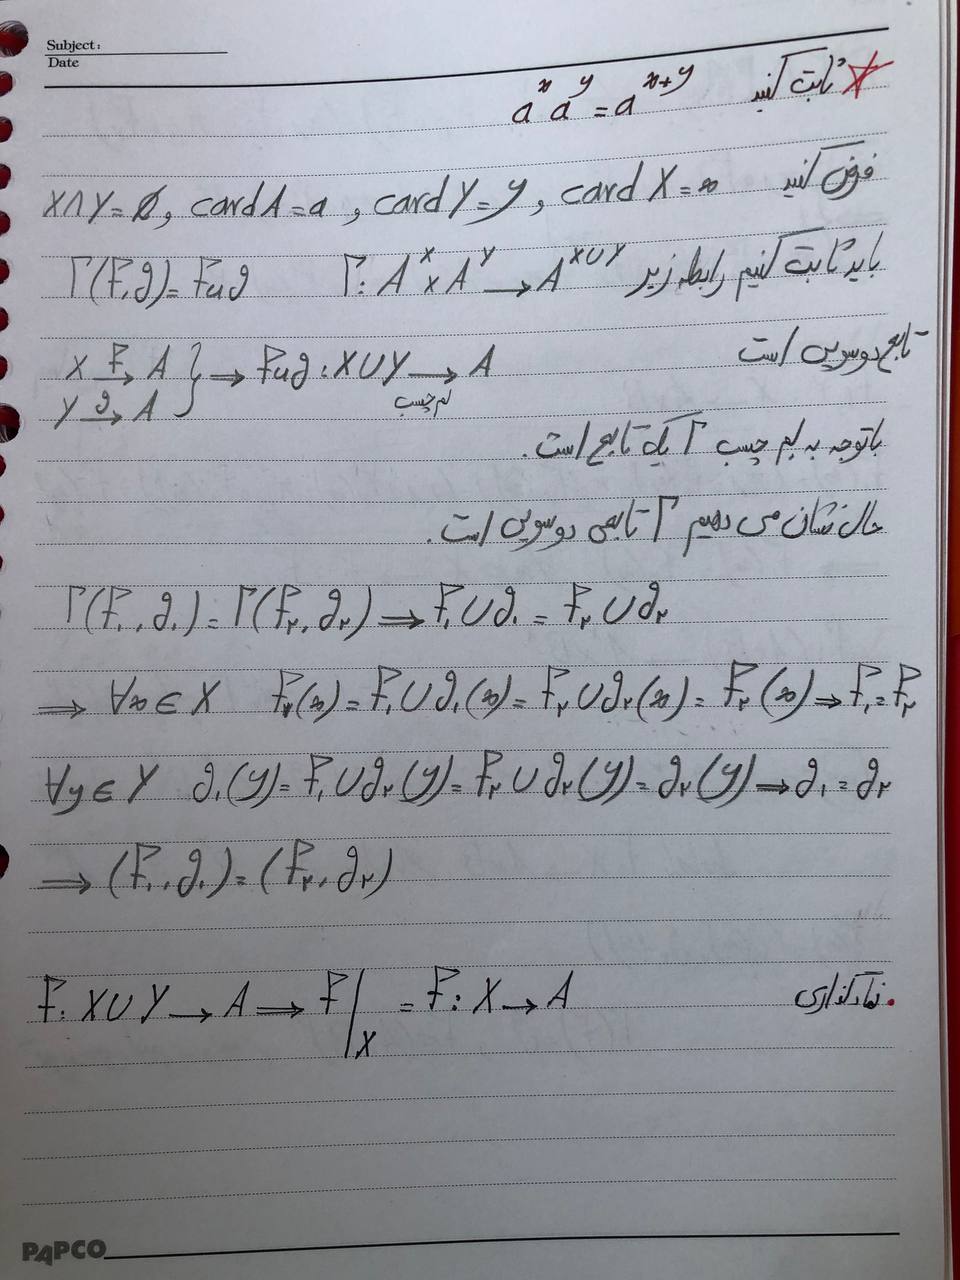 Subject:
Date
☆ ثابت کنید aˣ aʸ = aˣ⁺ʸ
فرض کنید X∩Y=∅, card A=a, card Y=y, card X=x
باید ثابت کنیم رابطه زیر Γ: Aˣ × Aʸ → Aˣᵁʸ Γ(f,g)=f∪g
تابع دوسویی است
X →f A } → f∪g : X∪Y → A
Y →g A لم چسب
با توجه به لم چسب Γ یک تابع است.
حال نشان می دهیم Γ تابعی دوسویی است.
Γ(f₁, g₁) = Γ(f₂, g₂) ⇒ f₁∪g₁ = f₂∪g₂
⇒ ∀x∈X f₁(x) = f₁∪g₁(x) = f₂∪g₂(x) = f₂(x) ⇒ f₁=f₂
∀y∈Y g₁(y) = f₁∪g₂(y) = f₂∪g₂(y) = g₂(y) ⇒ g₁=g₂
⇒ (f₁, g₁) = (f₂, g₂)
نمادگذاری. f: X∪Y → A ⇒ f|X = f: X → A
PAPCO